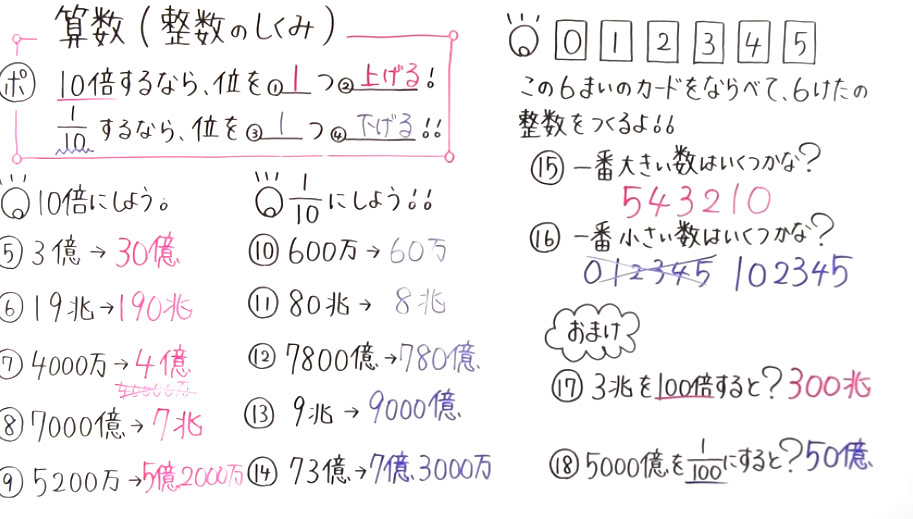 算数(整数のしくみ)
ポ 10倍するなら、位を①1つ②上げる!
1/10するなら、位を③1つ④下げる!!
10倍にしよう。
⑤3億→30億
⑥19兆→190兆
⑦4000万→4億
40000万
⑧7000億→7兆
⑨5200万→5億2000万
1/10にしよう!!
⑩600万→60万
⑪80兆→8兆
⑫7800億→780億
⑬9兆→9000億
⑭73億→7億3000万
0 1 2 3 4 5
この6まいのカードをならべて、6けたの
整数をつくるよ!!
⑮一番大きい数はいくつかな?
543210
⑯一番小さい数はいくつかな?
012345 102345
おまけ
⑰3兆を100倍すると?300兆
⑱5000億を1/100にすると?50億